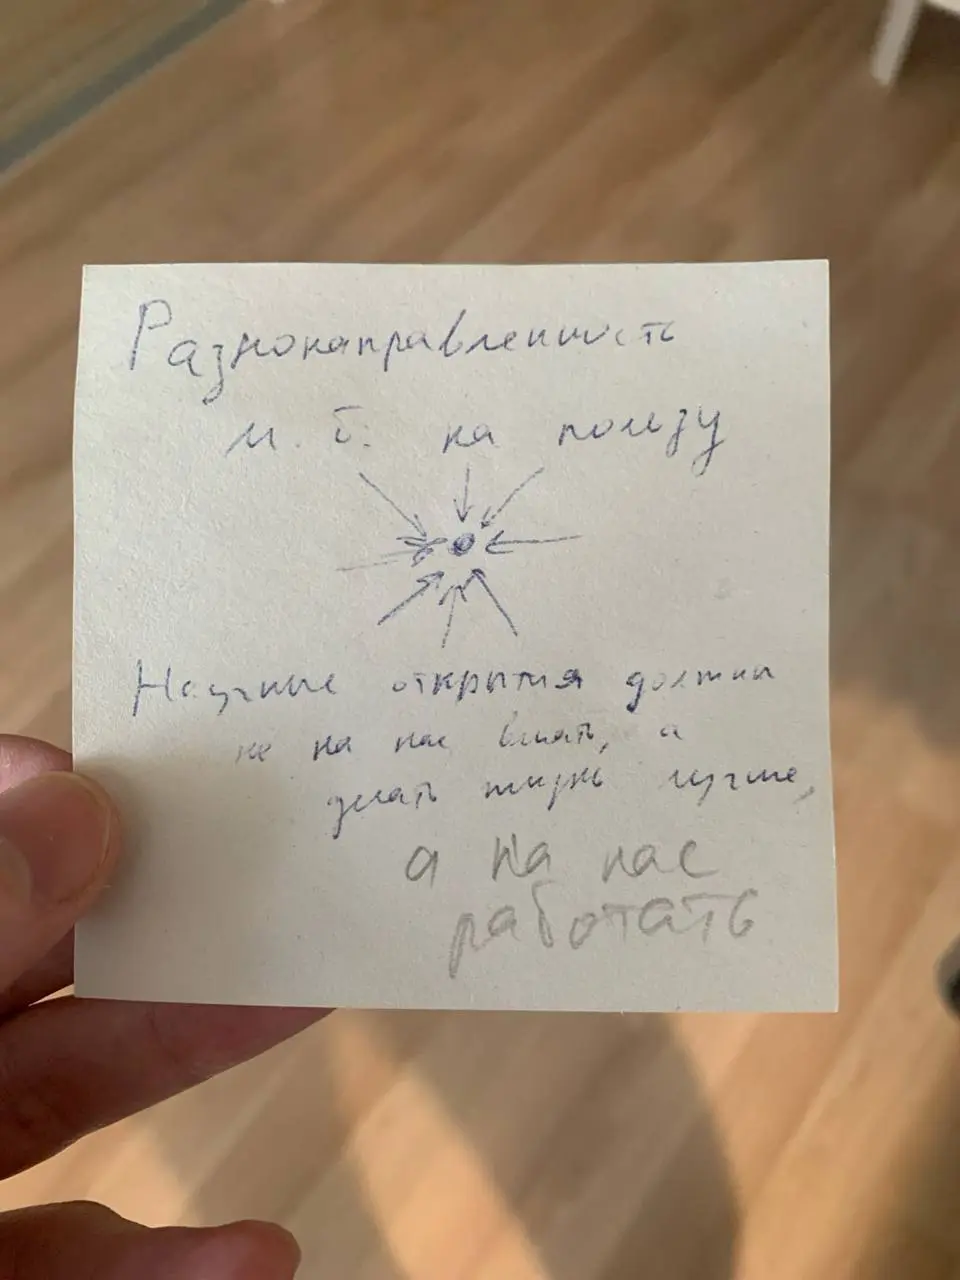 Разнонаправленность
м. б. на пользу
Научные открытия должны
не на нас влиять, а
делать жизнь лучше,
а на нас
работать